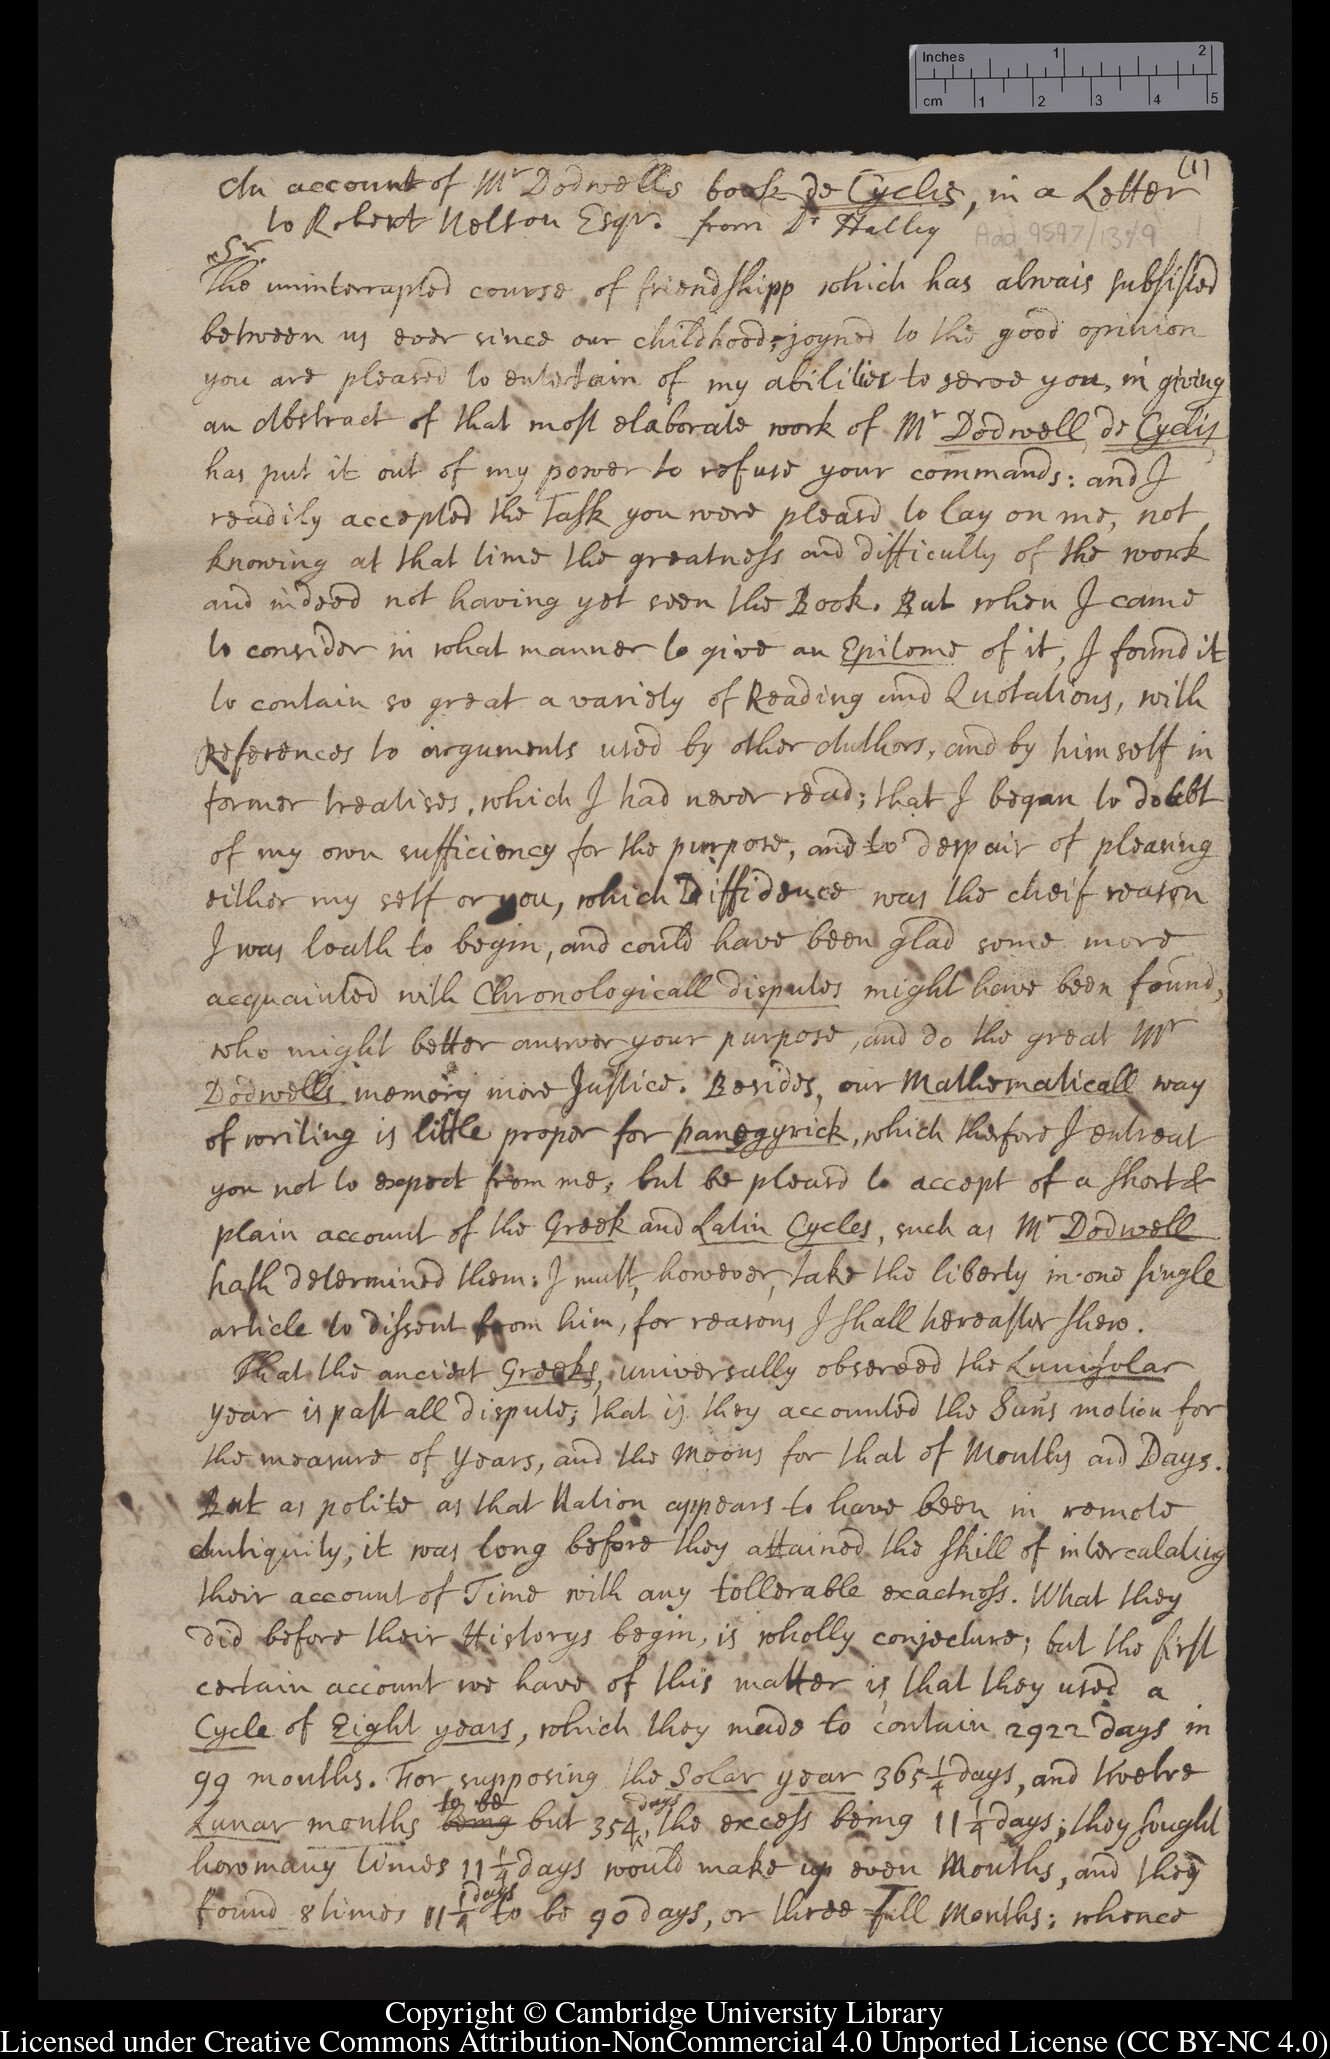 Inches 1 2
cm 1 2 3 4 5
(1)
An account of Mr Dodwells book de Cyclis, in a Letter
to Robert Nelson Esqr. from Dr Halley
Add. 9597/13/9
Sr.
The uninterrupted course of friendshipp which has alwais subsisted
between us ever since our childhood, joyned to the good opinion
you are pleased to entertain of my abilities to serve you, in giving
an Abstract of that most elaborate work of Mr Dodwell de Cyclis,
has put it out of my power to refuse your commands: and I
readily accepted the Task you were pleasd to lay on me, not
knowing at that time the greatness and difficulty of the work
and indeed not having yet seen the Book. But when I came
to consider in what manner to give an Epitome of it, I found it
to contain so great a variety of Reading and Quotations, with
References to arguments used by other Authors, and by himself in
former treatises, which I had never read; that I began to doubt
of my own sufficiency for the purpose, and to despair of pleasing
either my self or you, which Diffidence was the cheif reason
I was loath to begin, and could have been glad some more
acquainted with Chronologicall disputes might have been found,
who might better answer your purpose, and do the great Mr
Dodwells memory more Justice. Besides, our Mathematicall way
of writing is little proper for panegyrick, which therfore I entreat
you not to expect from me; but be pleasd to accept of a short &
plain account of the Greek and Latin Cycles, such as Mr Dodwell
hath determined them: I must, however, take the liberty in one single
article to dissent from him, for reasons I shall hereafter shew.
That the ancient Greeks, universally observed the Lunisolar
year is past all dispute; that is they accounted the Sun's motion for
the measure of Years, and the Moons for that of Months and Days.
But as polite as that Nation appears to have been in remote
Antiquity, it was long before they attained the skill of intercalating
their account of Time with any tollerable exactness. What they
did before their Historys begin, is wholly conjecture; but the first
certain account we have of this matter is, that they used a
Cycle of Eight years, which they made to contain 2922 days in
99 months. For supposing the Solar year 365 1/4 days, and twelve
Lunar months being to be but 354 days, the excess being 11 1/4 days; they sought
how many times 11 1/4 days would make up even Months, and they
found 8 times 11 1/4 days to be 90 days, or three full Months; whence
Copyright © Cambridge University Library
Licensed under Creative Commons Attribution-NonCommercial 4.0 Unported License (CC BY-NC 4.0)